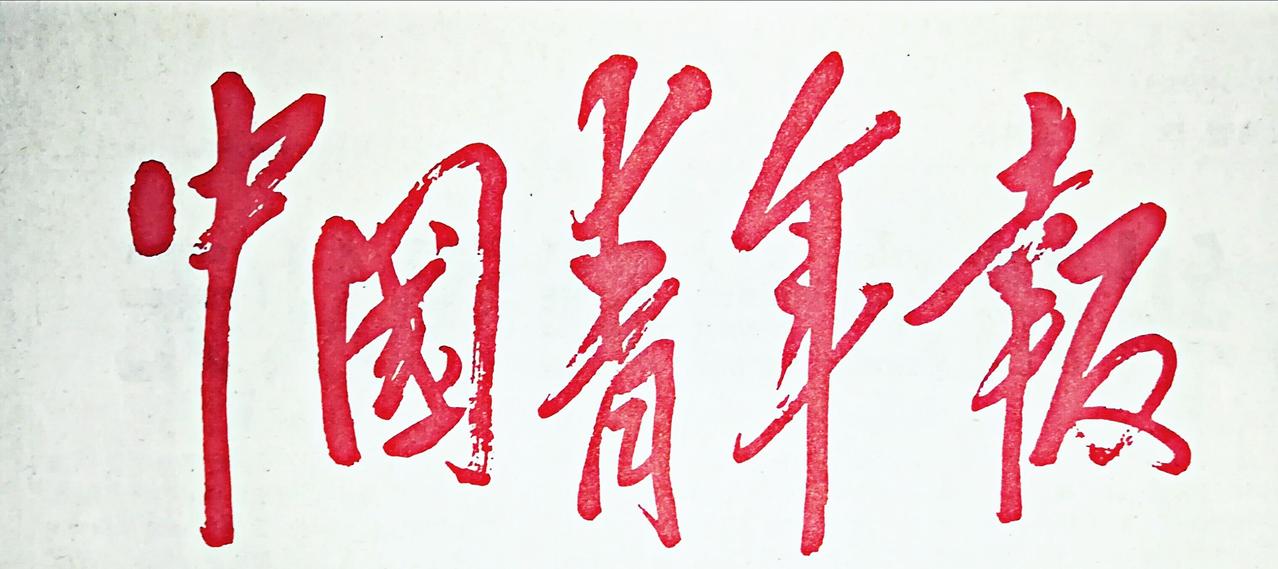 中國青年報